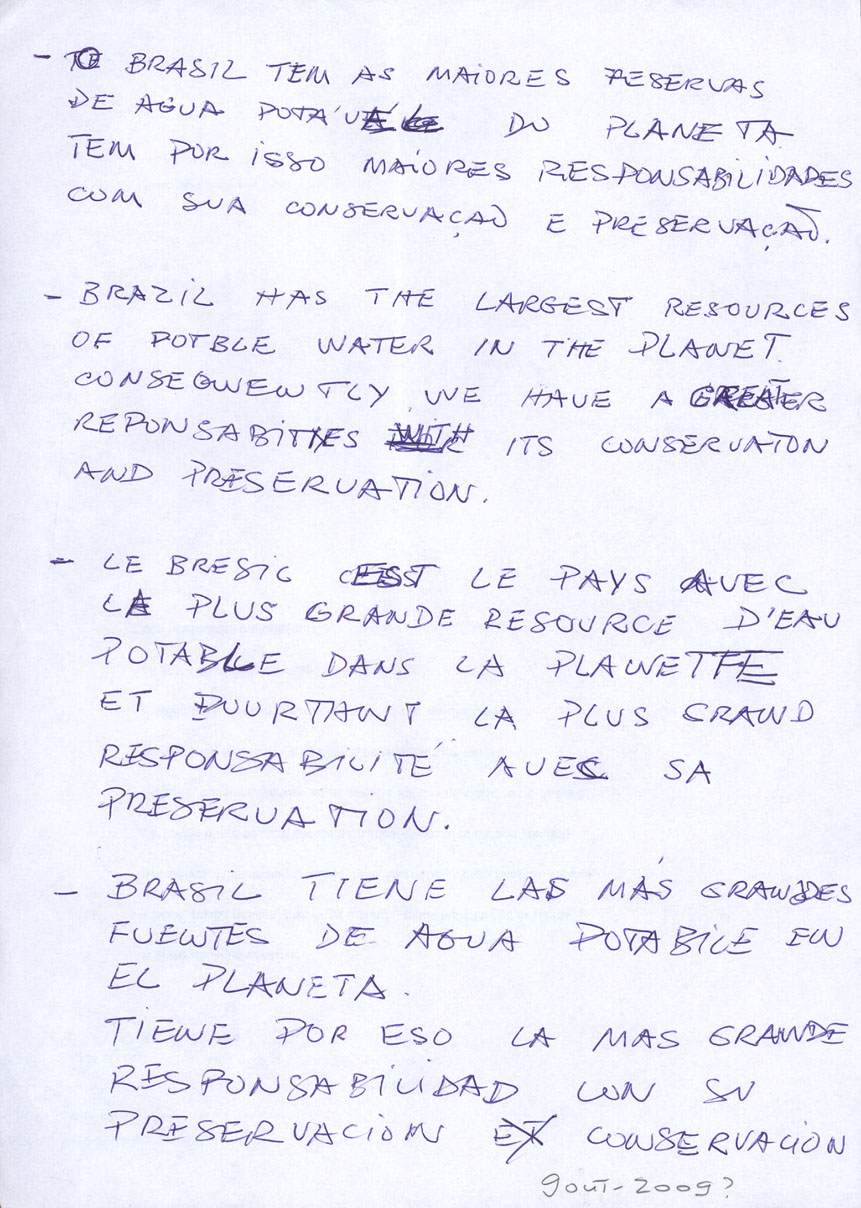 - O BRASIL TEM AS MAIORES RESERVAS
DE AGUA POTÁVEL DO PLANETA
TEM POR ISSO MAIORES RESPONSABILIDADES
COM SUA CONSERVAÇAÕ E PRESERVAÇAÕ.
- BRAZIL HAS THE LARGEST RESOURCES
OF POTBLE WATER IN THE PLANET.
CONSEQWEWTLY WE HAVE A GREATER
REPONSABITIES WITH ITS CONSERVATON
AND PRESERVATION.
- LE BRESIL EST LE PAYS AVEC
LA PLUS GRANDE RESOURCE D'EAU
POTABLE DANS LA PLANETTE
ET POURTANT LA PLUS GRAND
RESPONSABILITÉ AVEC SA
PRESERVATION.
- BRASIL TIENE LAS MÁS GRANDES
FUENTES DE AGUA POTABILE EN
EL PLANETA.
TIENE POR ESO LA MAS GRANDE
RESPONSABILIDAD CON SU
PRESERVACION E CONSERVACION
gout-2009?